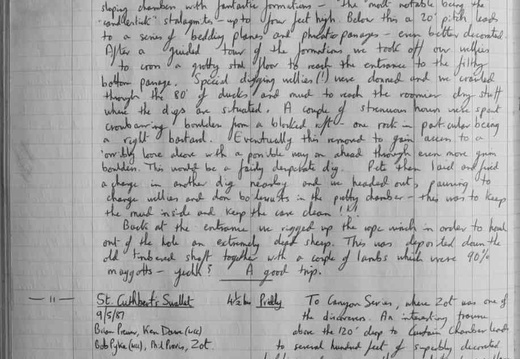 sloping chamber with fantastic formations - the most notable being the
"candlestick" stalagmite - up to four feet high. Below this a 20' pitch leads
to a series of bedding planes and phreatic passages - even better decorated.
After a guided tour of the formations we took off our wellies
to cross a grotty stal floor to reach the entrance to the filthy
bottom passage. Special digging wellies (!) were donned and we crawled
through the 80' of ducks and mud to reach the roomier dry stuff
where the digs are situated. A couple of strenuous hours were spent
crowbarring boulders from a blocked rift - one rock in particular being
a right bastard. Eventually this removed to gain access to a
loose above with a possible way on ahead through even more grim
boulders. This would be a fairly desperate dig. Pete then laid and fired
a charge in another dig nearby and we headed out, pausing to
change wellies and don boilersuits in the putty chamber - this was to keep
the mud inside and keep the cave clean!!!
Back at the entrance we rigged up the rope winch in order to haul
out of the hole an extremely dead sheep. This was deposited down the
old timbered shaft together with a couple of lambs which were 90%
maggots - yeuk! A good trip.
- 11 - St. Cuthbert's Swallet 4½ hrs Priddy To Canyon Series, where Zot was one of
9/5/87 the discoverers. An interesting traverse
Brian Prewer, Ken Dawe (WCC) above the 120' deep to Curtain Chamber leads
Bob Pyke (WCC), Phil, Zot to several hundred feet of superbly decorated